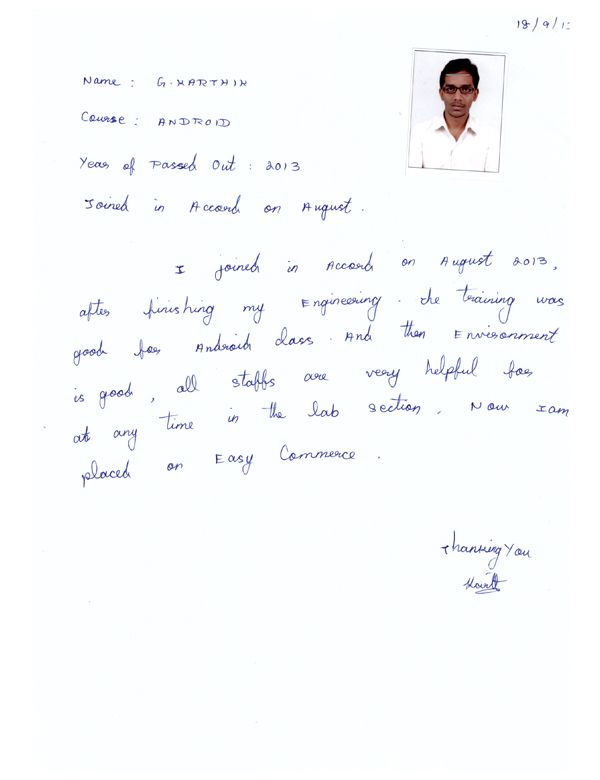 18/9/1
Name : G. KARTHIK
Course : ANDROID
Year of Passed Out : 2013
Joined in Accord on August.
I joined in Accord on August 2013,
after finishing my Engineering. the training was
good for Android class. And then Environment
is good, all staffs are very helpful for
at any time in the lab section. Now I am
placed on Easy Commerce.
Thanking You